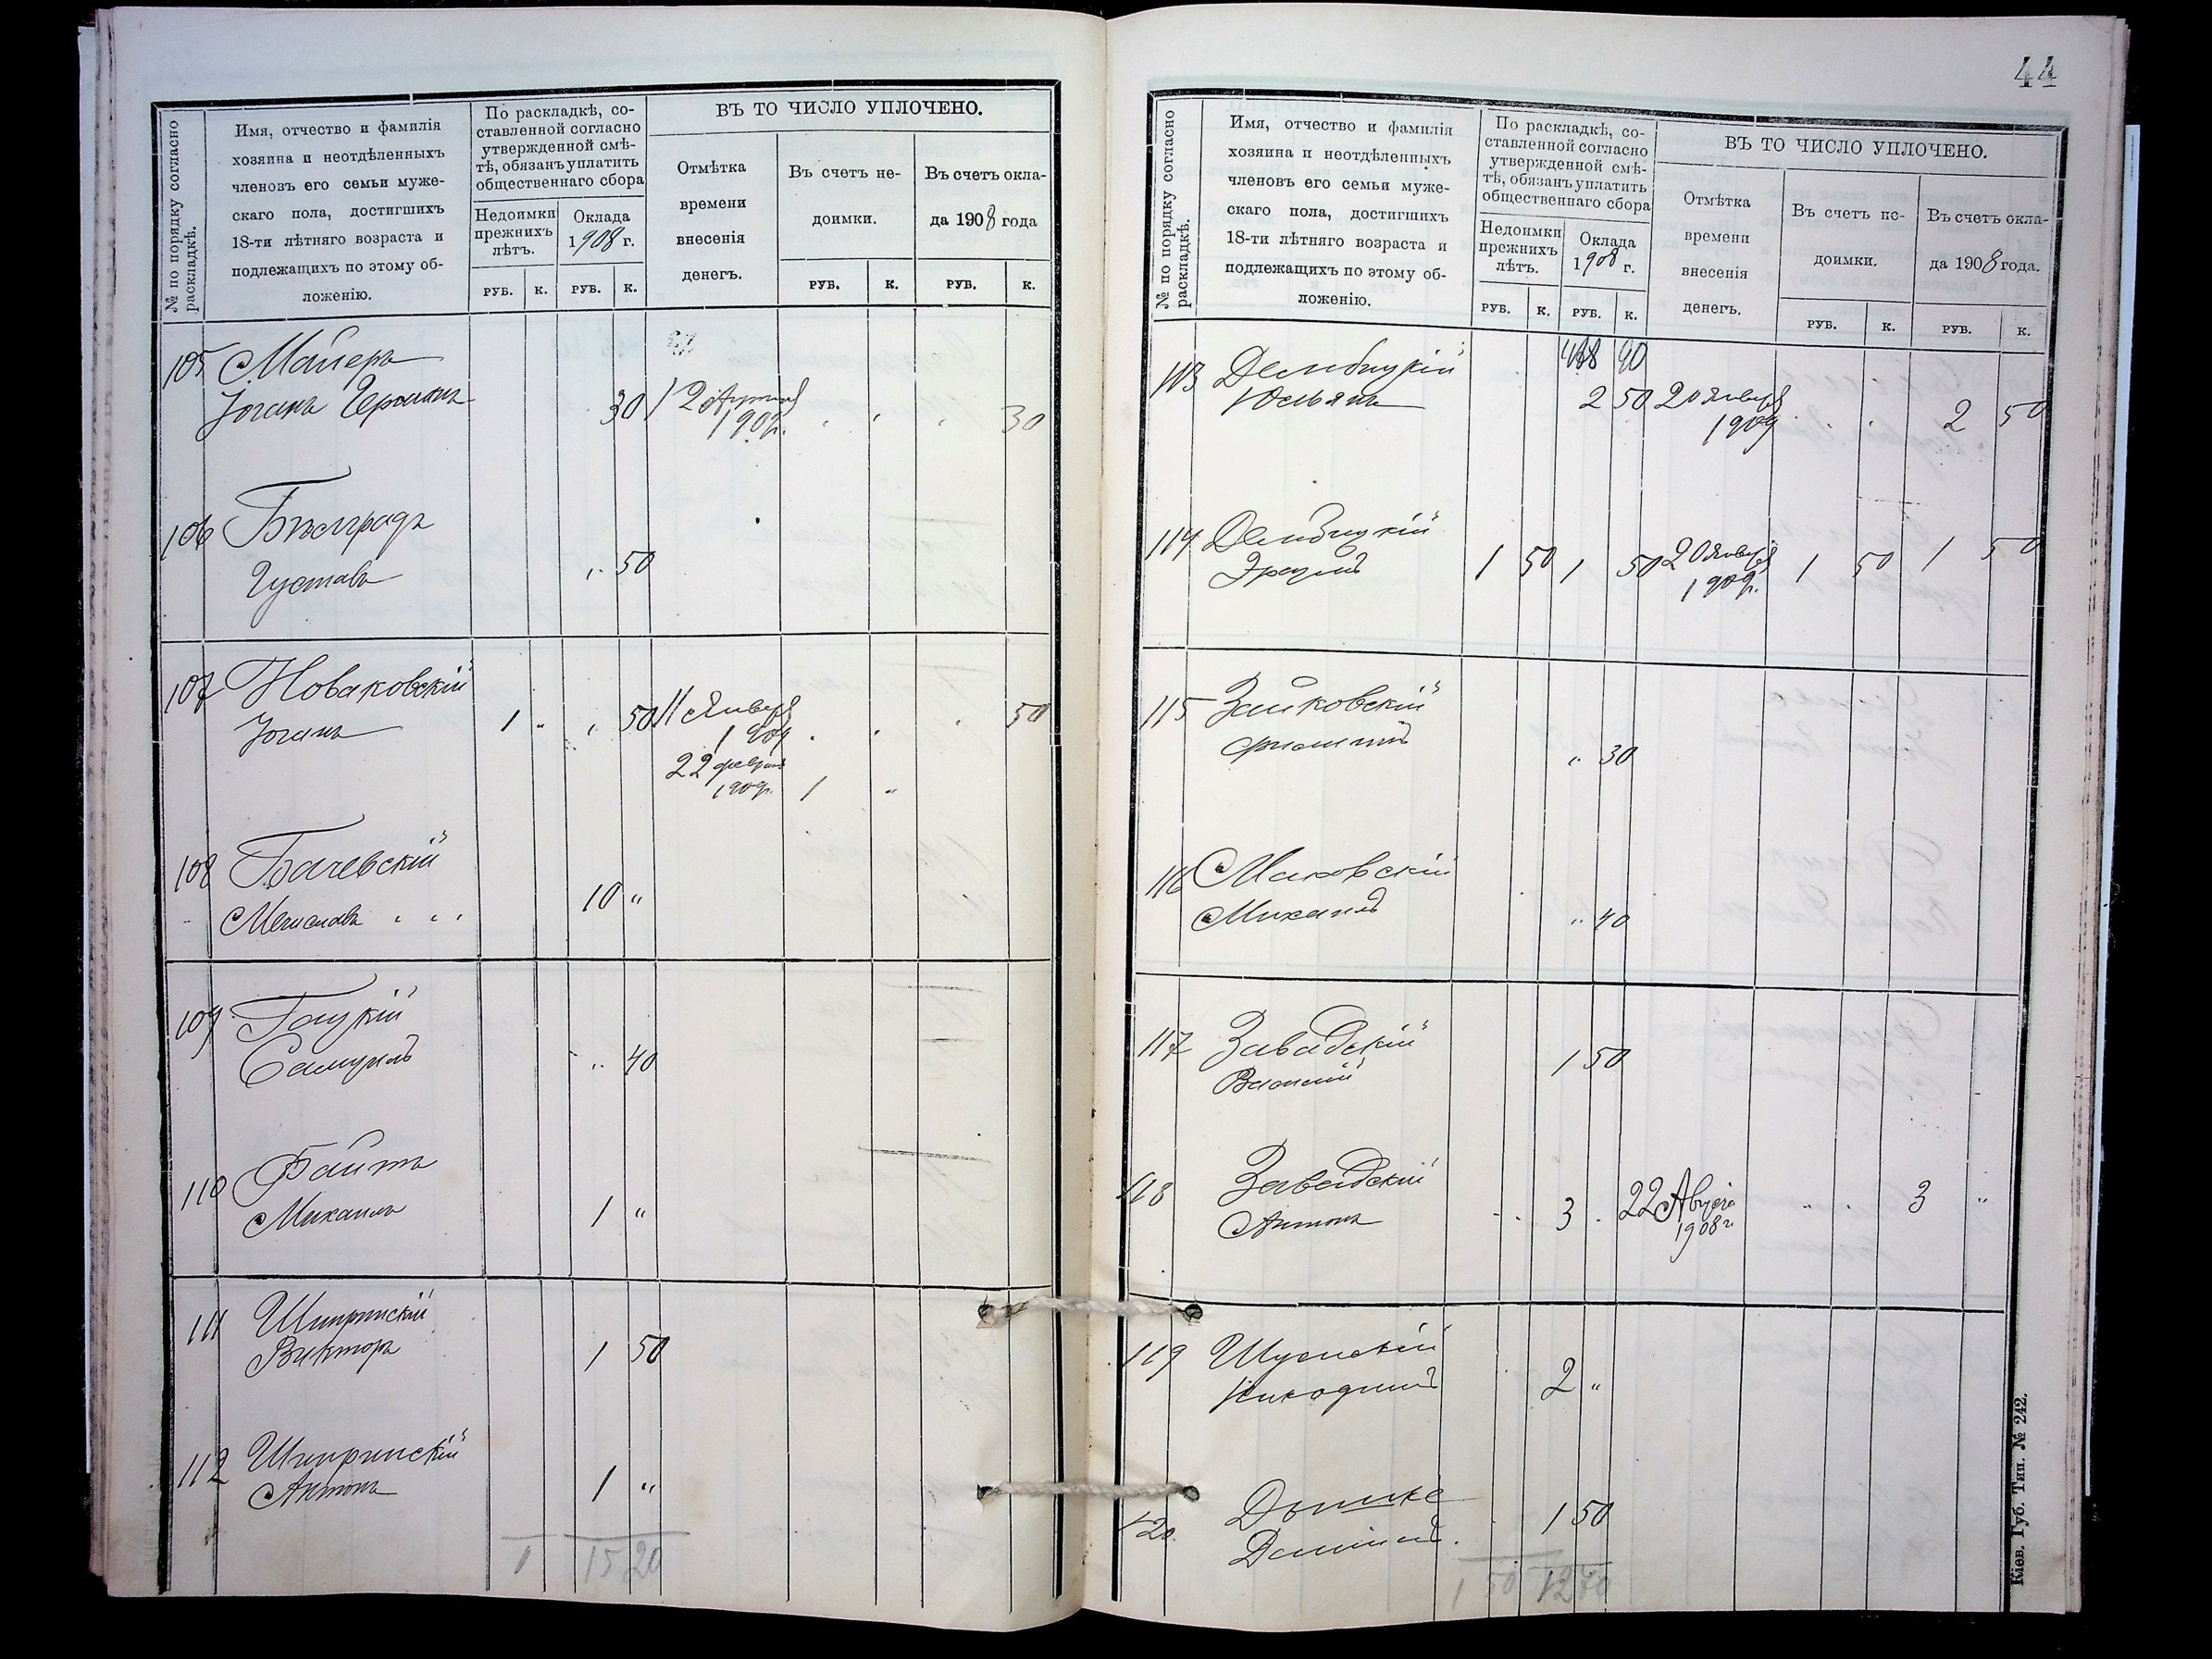 44
№ по порядку согласно раскладкѣ.
Имя, отчество и фамилія
хозяина и неотдѣленныхъ
членовъ его семьи муже-
скаго пола, достигшихъ
18-ти лѣтняго возраста и
подлежащихъ по этому об-
ложенію.
По раскладкѣ, со-
ставленной согласно
утвержденной смѣ-
тѣ, обязанъ уплатить
общественнаго сбора
Недоимки
прежнихъ
лѣтъ.
Оклада
1908 г.
ВЪ ТО ЧИСЛО УПЛОЧЕНО.
Отмѣтка
времени
внесенія
денегъ.
Въ счетъ не-
доимки.
Въ счетъ окла-
да 1908 года
РУБ. К. РУБ. К. РУБ. К. РУБ. К.
105 Майеръ
Іоганъ Германъ 30 30
106
Густавъ " 50
107 Новаковскій
Іоганъ 1 " " 50 11 Января 1909 50
22 февраля
1909 г. 1 "
108 Бачевскій
Мечиславъ 10 "
109 Гоцкій
Самуилъ " 40
110
Михаилъ 1 "
111
Викторъ 1 50
112
Антонъ 1 "
1 15 20
№ по порядку согласно раскладкѣ.
Имя, отчество и фамилія
хозяина и неотдѣленныхъ
членовъ его семьи муже-
скаго пола, достигшихъ
18-ти лѣтняго возраста и
подлежащихъ по этому об-
ложенію.
По раскладкѣ, со-
ставленной согласно
утвержденной смѣ-
тѣ, обязанъ уплатить
общественнаго сбора
Недоимки
прежнихъ
лѣтъ.
Оклада
1908 г.
ВЪ ТО ЧИСЛО УПЛОЧЕНО.
Отмѣтка
времени
внесенія
денегъ.
Въ счетъ не-
доимки.
Въ счетъ окла-
да 1908 года.
РУБ. К. РУБ. К. РУБ. К. РУБ. К.
113 Дембицкій
Юльянъ 2 50 20 Января 1909 2 50
114 Дембицкій
1 50 1 50 20 Января 1909 г. 1 50 1 50
115 Зайковскій
" 30
116 Маковскій
Михаилъ " 40
117 Завадскій
1 50
118 Завадскій
Антонъ 3 22 Августа 1908 г. 3 "
119
Никодимъ 2 "
120
1 50
1 50 12 70
Кіев. Губ. Тип. № 242.